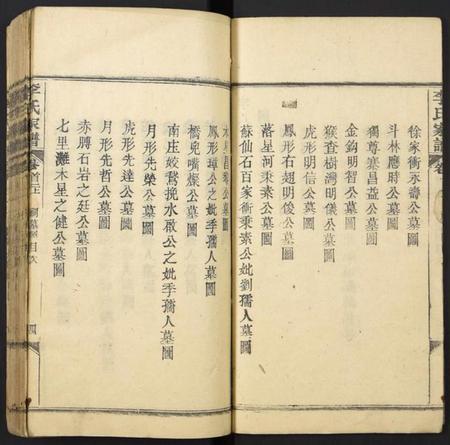 李氏家譜 卷
徐家衝永壽公墓圖
斗林應時公墓圖
獨尊寨昌益公墓圖
金鈎明智公墓圖
猴查樹灣明儀公墓圖
虎形明信公墓圖
鳳形右翅明俊公墓圖
落星河秉素公墓圖
蘇仙石百家衝秉素公妣劉孺人墓圖
木星昌秦公墓圖
鳳形璋公之妣季孺人墓圖
橋兒嘴燦公墓圖
南庄姣鵞挽水啟公之妣季孺人墓圖
月形先榮公墓圖
虎形先達公墓圖
月形先哲公墓圖
赤膊石岩之廷公墓圖
七里灘木星之健公墓圖
李氏家譜 卷首三 墓圖目次 四